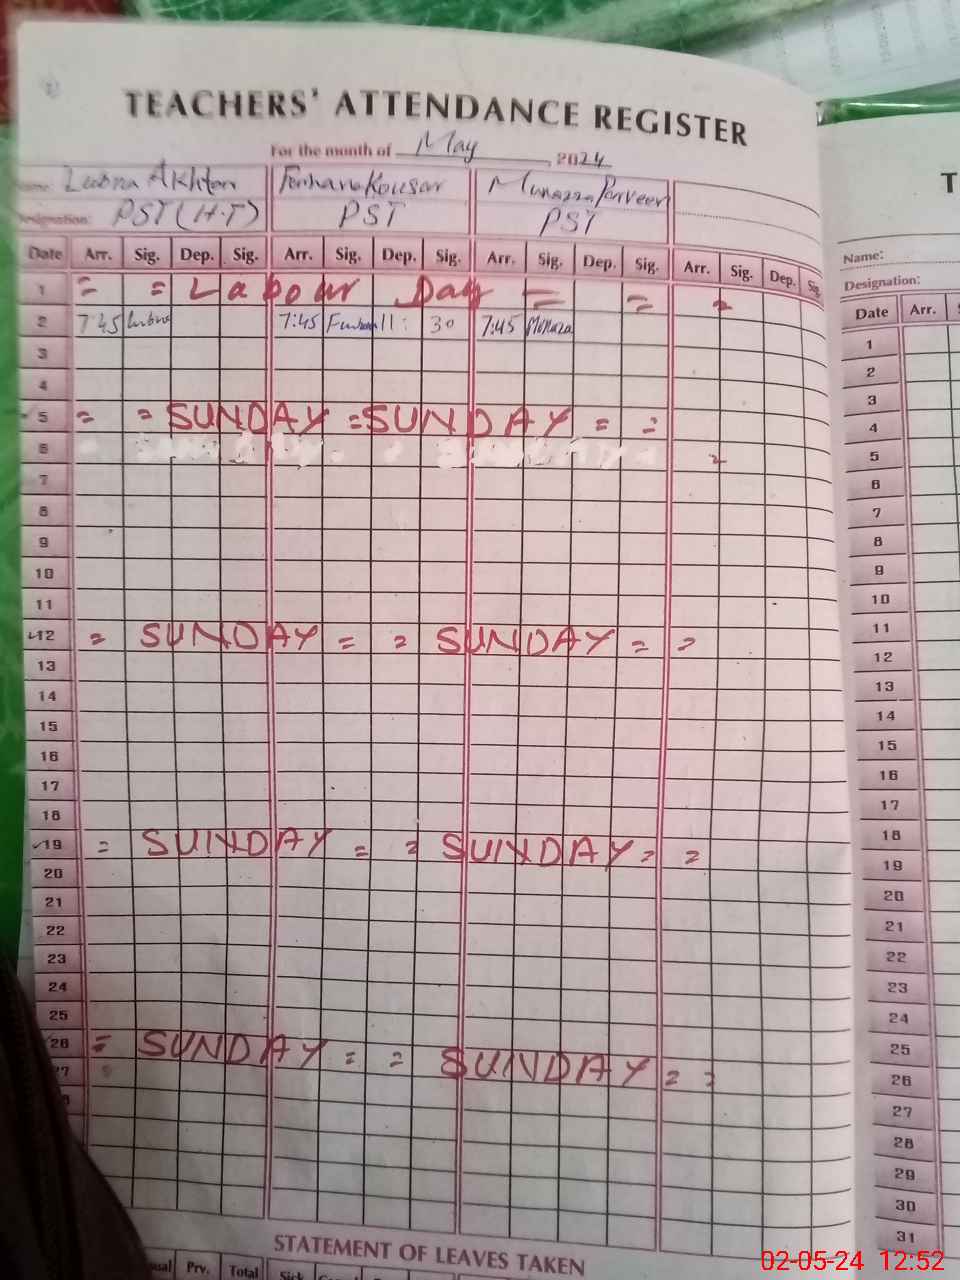 TEACHERS' ATTENDANCE REGISTER
For the month of May, 2024
Name: Lubna Akhtar Farhana Kousar Munazza Parveen
Designation: PST (H.T) PST PST
Date Arr. Sig. Dep. Sig. Arr. Sig. Dep. Sig. Arr. Sig. Dep. Sig. Arr. Sig. Dep. Sig.
1 = = Labour Day = = =
2 7:45 Lubna 7:45 Farhana 11: 30 7:45 Munaza
3
4
5 = = SUNDAY = SUNDAY = =
6
7
8
9
10
11
12 = SUNDAY = = SUNDAY = =
13
14
15
16
17
18
19 = SUNDAY = = SUNDAY = =
20
21
22
23
24
25
26 = SUNDAY = = SUNDAY = =
27
STATEMENT OF LEAVES TAKEN
Prv. Total Sick
T
Name:
Designation:
Date Arr.
1
2
3
4
5
6
7
8
9
10
11
12
13
14
15
16
17
18
19
20
21
22
23
24
25
26
27
28
29
30
31
02-05-24 12:52